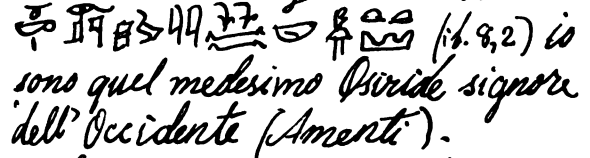 (ib. 8,2) io
sono quel medesimo Osiride signore
dell'Occidente (Amenti).